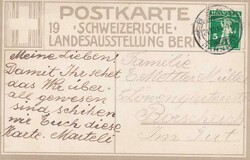 POSTKARTE
19 SCHWEIZERISCHE
LANDESAUSSTELLUNG BERN
Meine Lieben!
Damit Ihr sehet
das Wir über-
all gewesen
sind, schiken
wir Euch diese
Karte. Marteli
Familie
E. Mettler-Müller